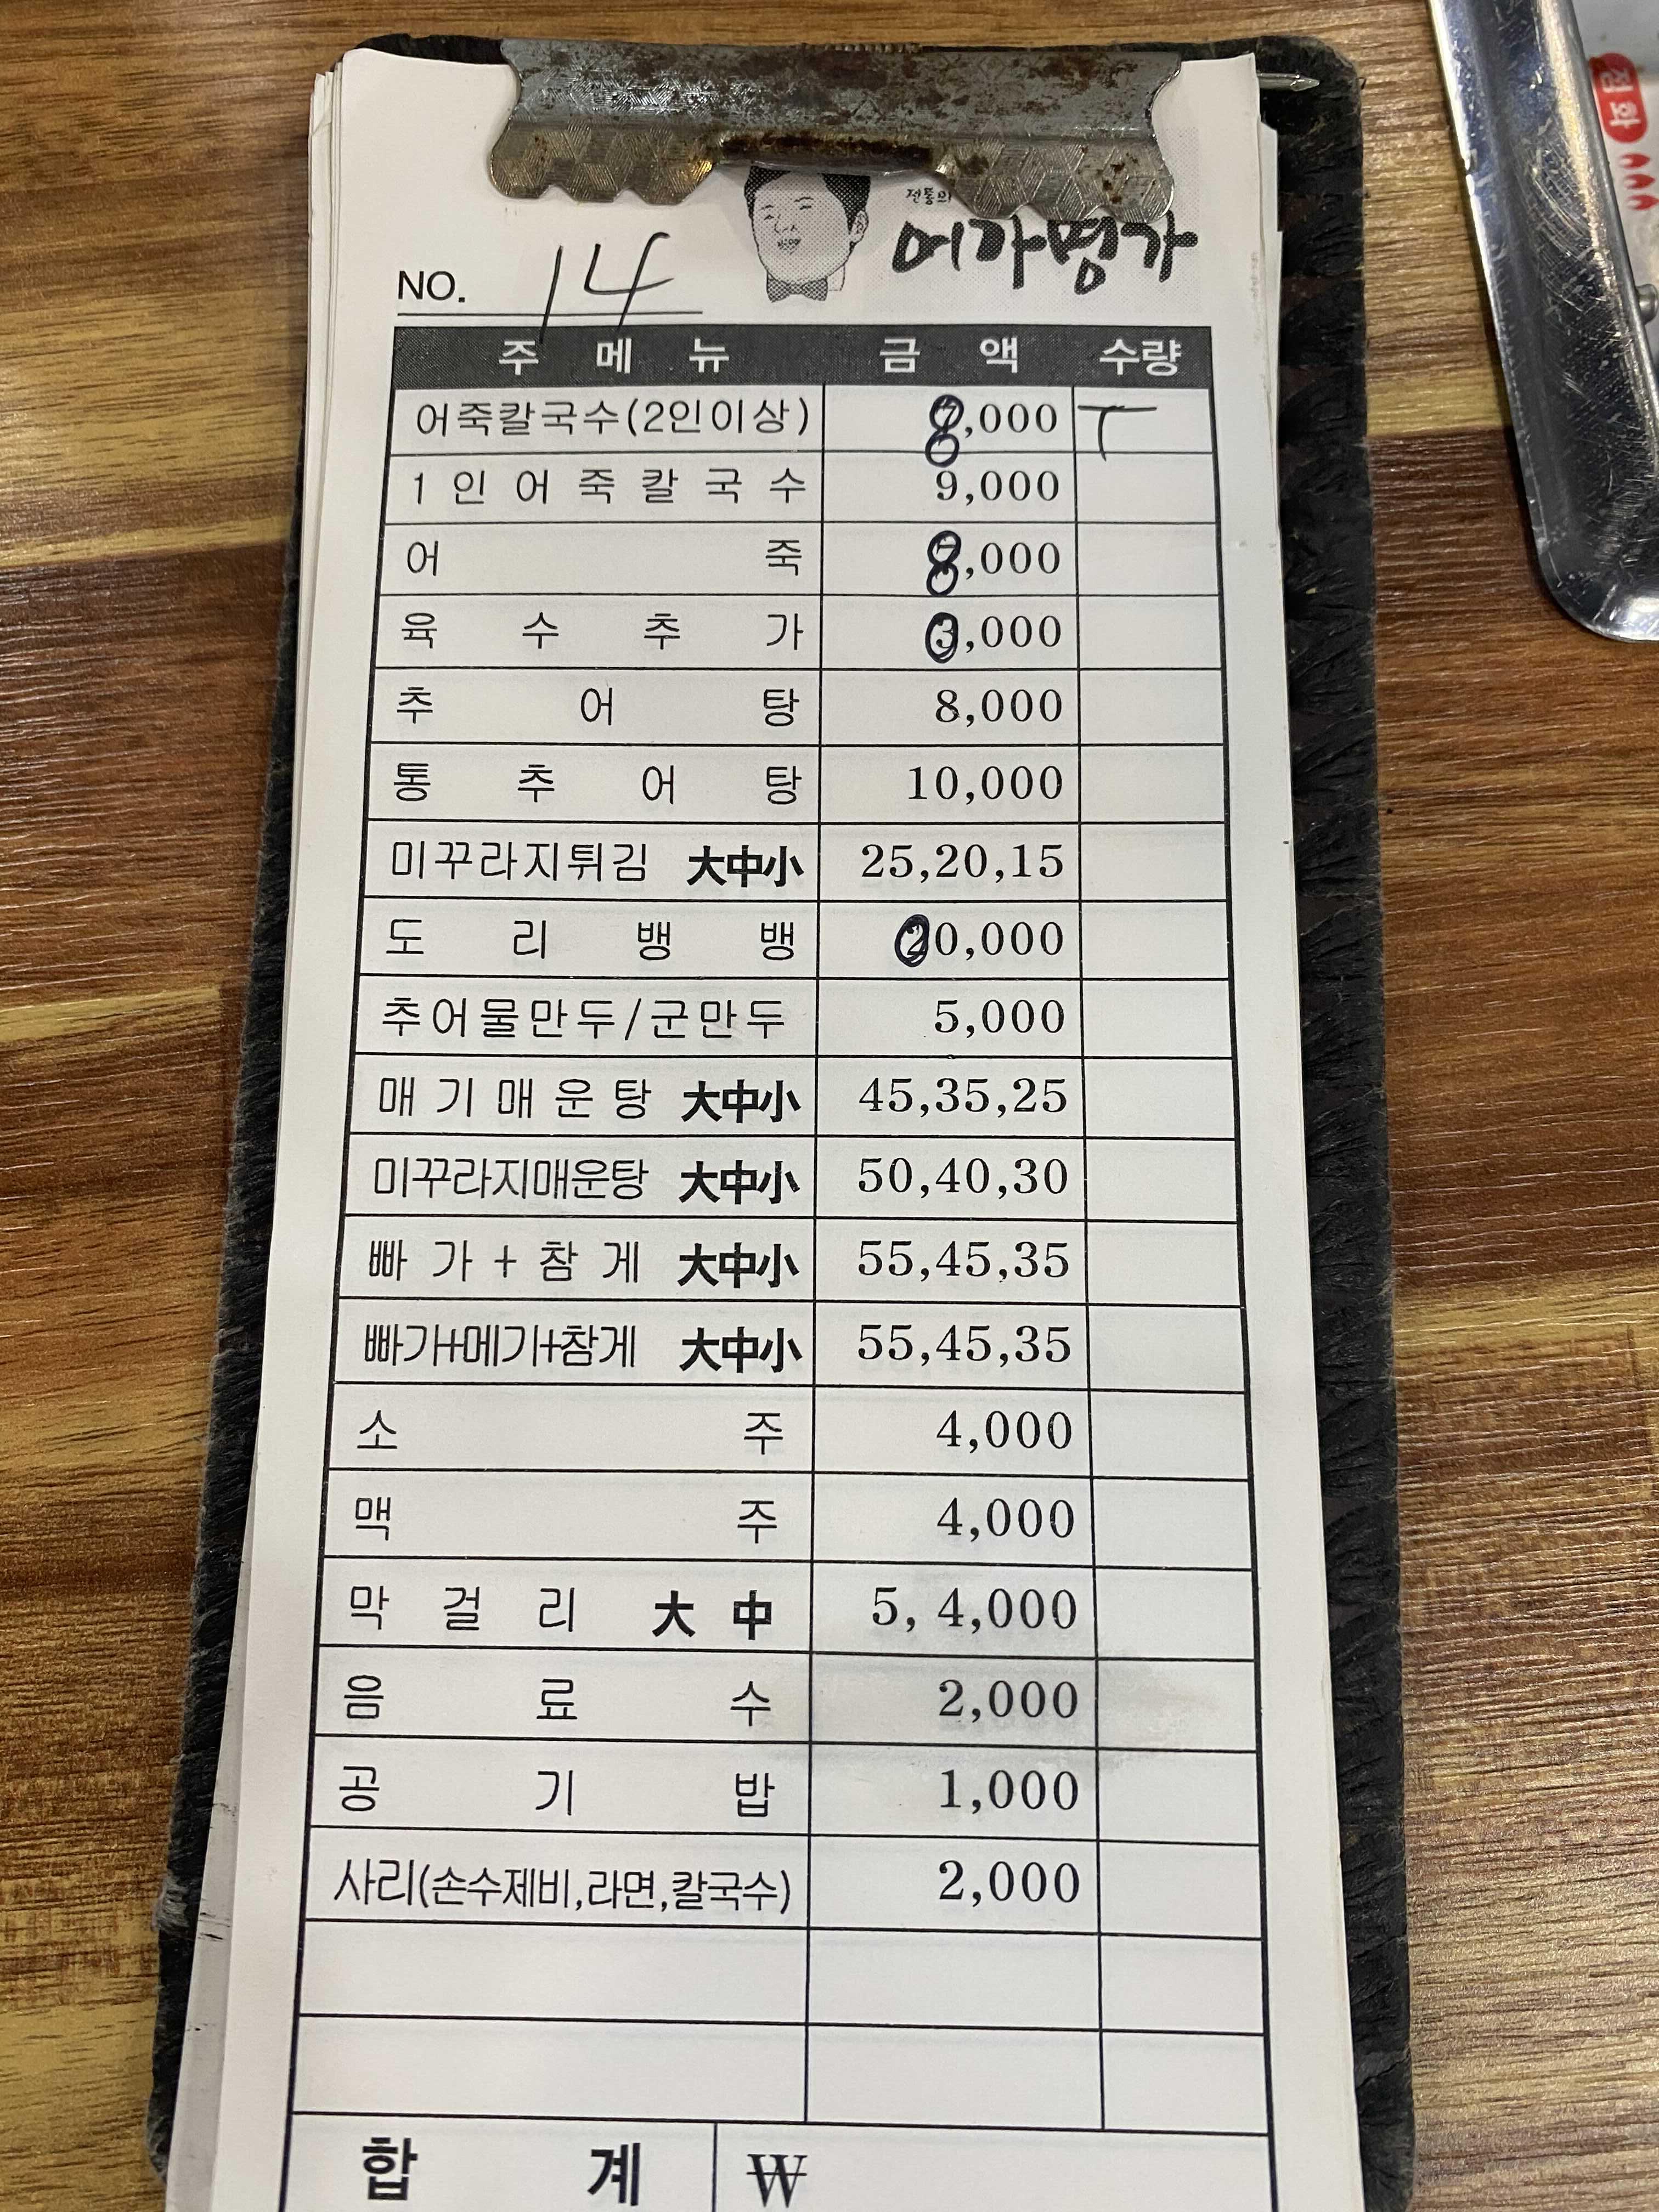 전통의
어가명가
NO. 14
주 메 뉴 금 액 수량
어죽칼국수(2인이상) 8,000 T
1인어죽칼국수 9,000
어 죽 8,000
육 수 추 가 ,000
추 어 탕 8,000
통 추 어 탕 10,000
미꾸라지튀김 大中小 25,20,15
도 리 뱅 뱅 0,000
추어물만두/군만두 5,000
매기매운탕 大中小 45,35,25
미꾸라지매운탕 大中小 50,40,30
빠가+참게 大中小 55,45,35
빠가+메기+참게 大中小 55,45,35
소 주 4,000
맥 주 4,000
막 걸 리 大 中 5, 4,000
음 료 수 2,000
공 기 밥 1,000
사리(손수제비,라면,칼국수) 2,000
합 계 ₩